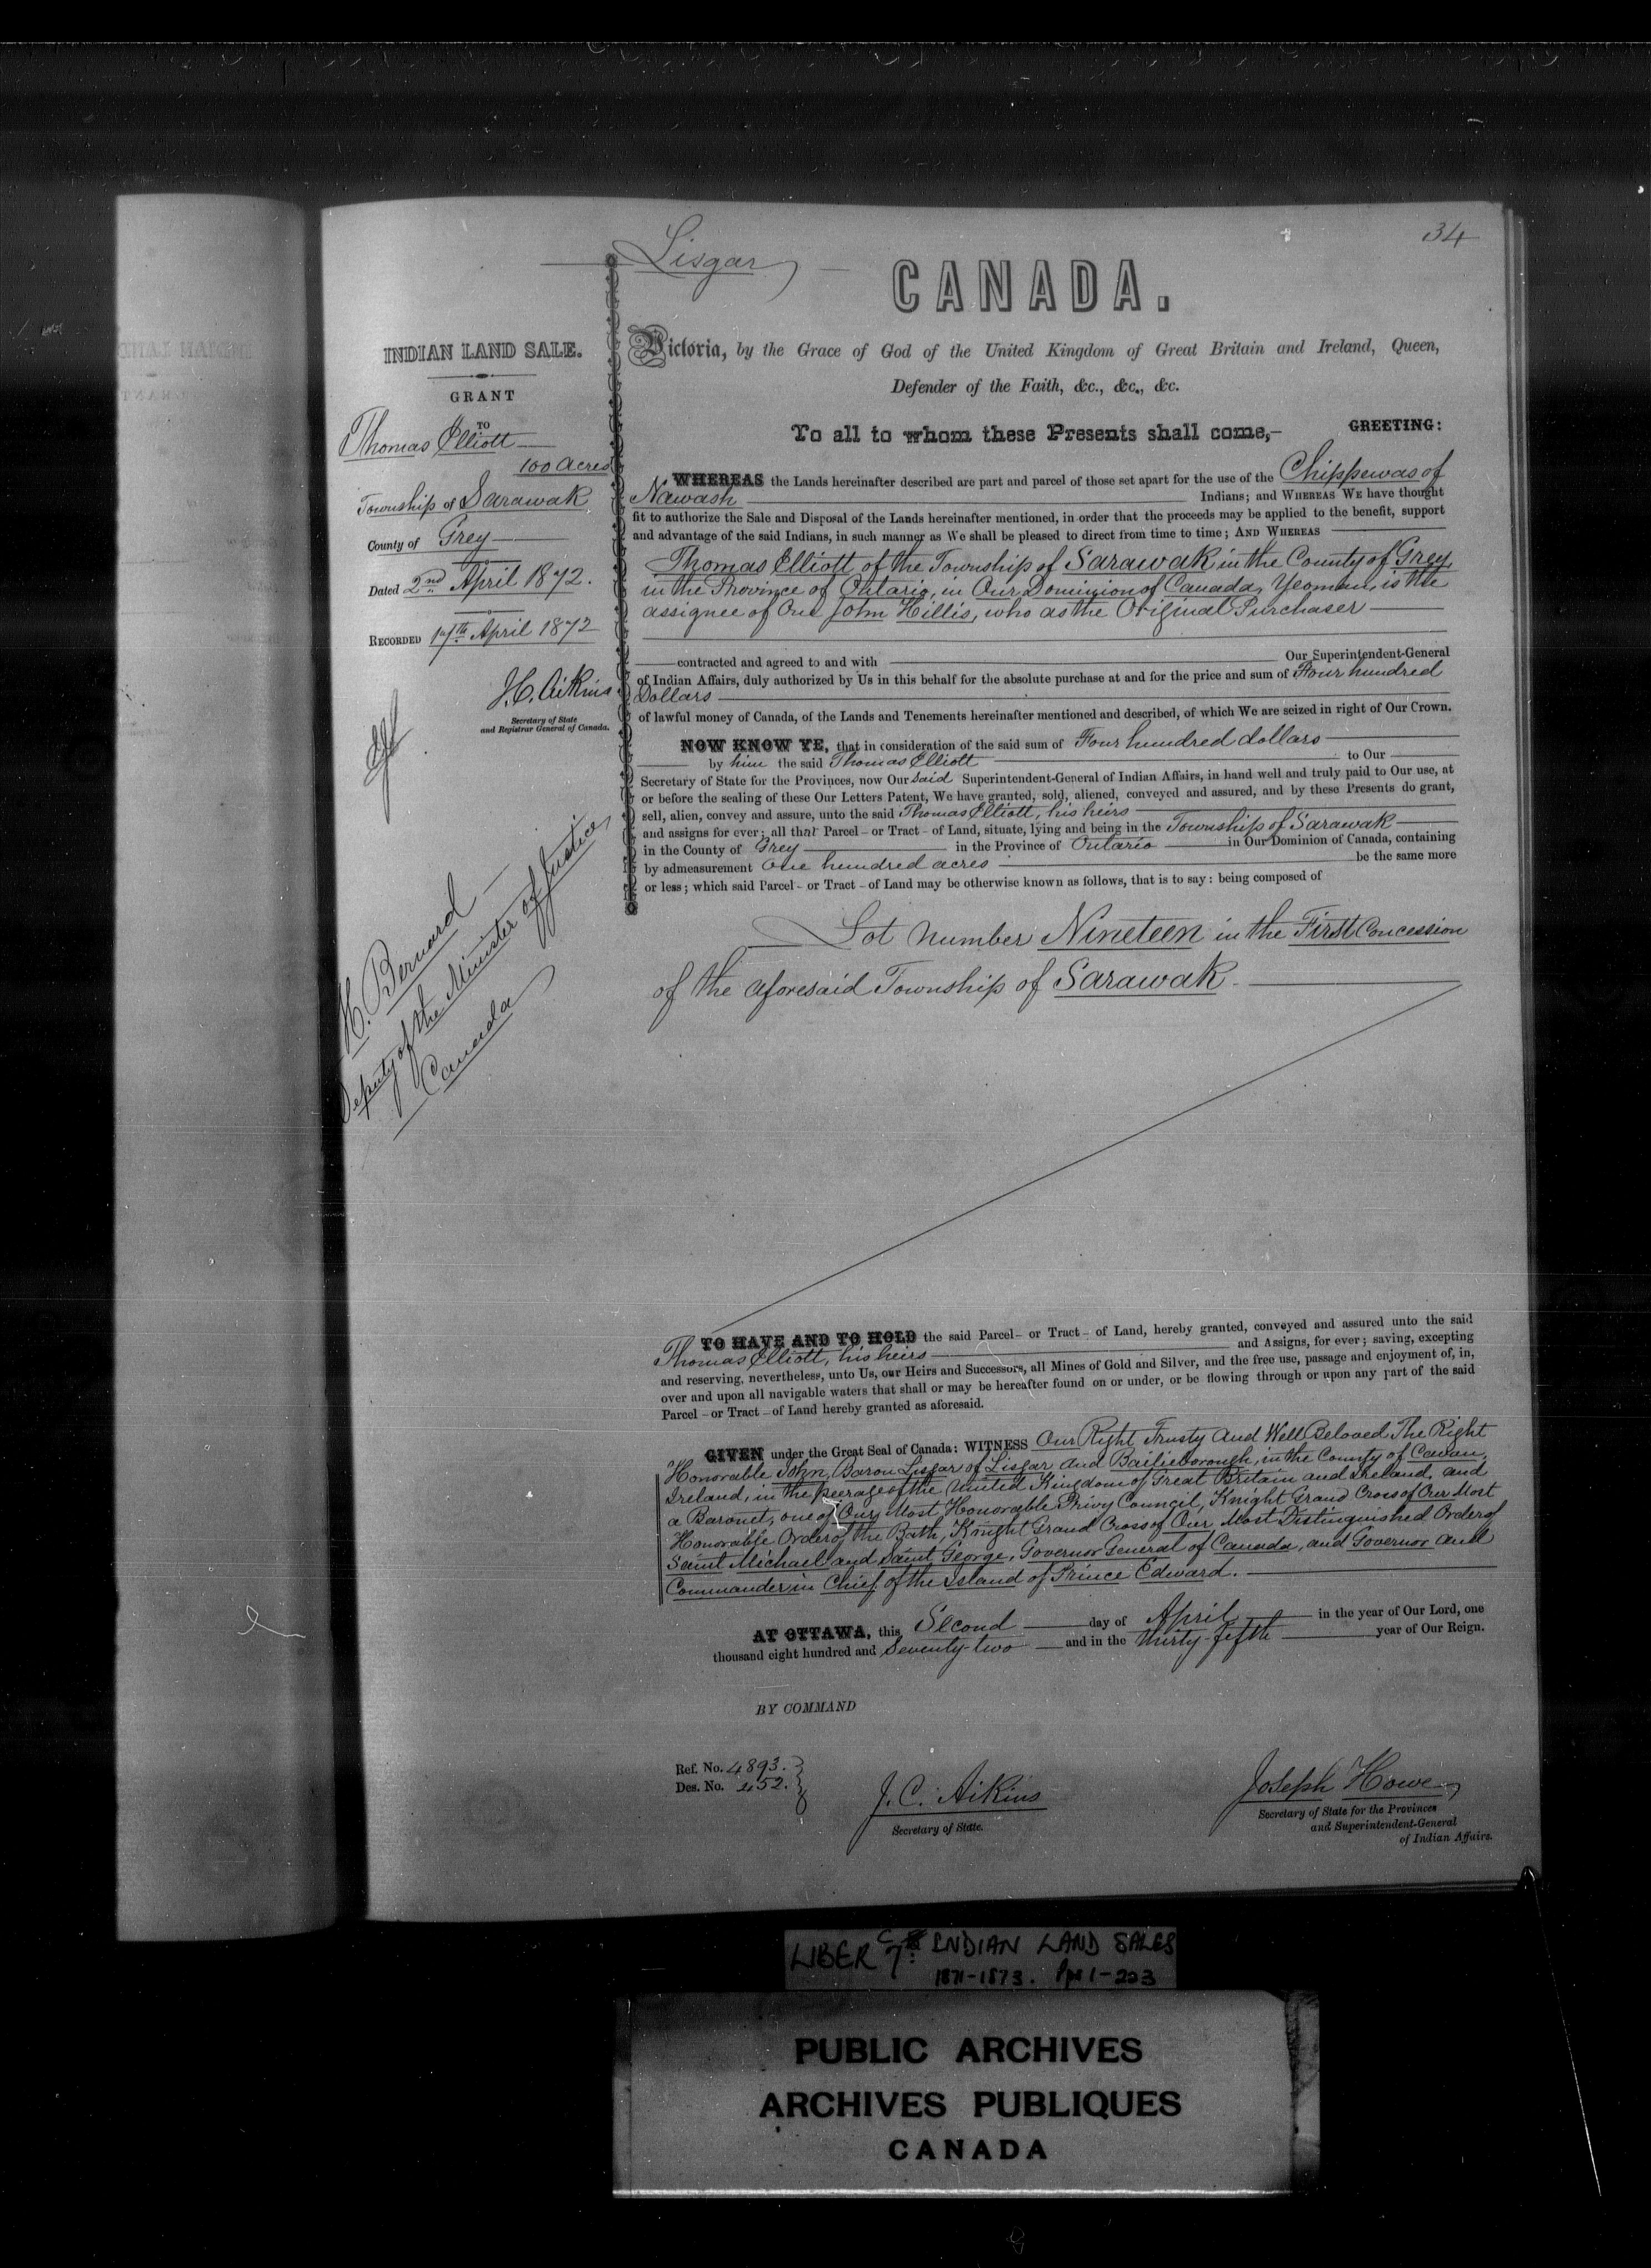 34
Lisgar
CANADA.
INDIAN LAND SALE.
GRANT
TO
Thomas Elliott
100 Acres
Township of Sarawak
County of Grey
Dated 2nd April 1872.
RECORDED 17th April 1872
J.C. Aikins
Secretary of State
and Registrar General of Canada.
H. Bernard
Deputy of the Minister of Justice
Canada
Victoria, by the Grace of God of the United Kingdom of Great Britain and Ireland, Queen,
Defender of the Faith, &c., &c., &c.
To all to whom these Presents shall come,- GREETING:
WHEREAS the Lands hereinafter described are part and parcel of those set apart for the use of the Chippewas of
Nawash Indians; and WHEREAS WE have thought
fit to authorize the Sale and Disposal of the Lands hereinafter mentioned, in order that the proceeds may be applied to the benefit, support
and advantage of the said Indians, in such manner as We shall be pleased to direct from time to time; AND WHEREAS
Thomas Elliott of the Township of Sarawak in the County of Grey,
in the Province of Ontario, in Our Dominion of Canada, Yeoman, is the
assignee of One John Hillis, who as the Original Purchaser
contracted and agreed to and with Our Superintendent-General
of Indian Affairs, duly authorized by Us in this behalf for the absolute purchase at and for the price and sum of Four hundred
Dollars
of lawful money of Canada, of the Lands and Tenements hereinafter mentioned and described, of which We are seized in right of Our Crown.
NOW KNOW YE, that in consideration of the said sum of Four hundred dollars
by him the said Thomas Elliott to Our
Secretary of State for the Provinces, now Our said Superintendent-General of Indian Affairs, in hand well and truly paid to Our use, at
or before the sealing of these Our Letters Patent, We have granted, sold, aliened, conveyed and assured, and by these Presents do grant,
sell, alien, convey and assure, unto the said Thomas Elliott, his heirs
and assigns for ever; all that Parcel - or Tract - of Land, situate, lying and being in the Township of Sarawak
in the County of Grey in the Province of Ontario in Our Dominion of Canada, containing
by admeasurement One hundred acres be the same more
or less; which said Parcel - or Tract - of Land may be otherwise known as follows, that is to say: being composed of
Lot Number Nineteen in the First Concession
of the aforesaid Township of Sarawak.
TO HAVE AND TO HOLD the said Parcel - or Tract - of Land, hereby granted, conveyed and assured unto the said
Thomas Elliott, his heirs and Assigns, for ever; saving, excepting
and reserving, nevertheless, unto Us, our Heirs and Successors, all Mines of Gold and Silver, and the free use, passage and enjoyment of, in,
over and upon all navigable waters that shall or may be hereafter found on or under, or be flowing through or upon any part of the said
Parcel - or Tract - of Land hereby granted as aforesaid.
GIVEN under the Great Seal of Canada: WITNESS Our Right Trusty and Well Beloved The Right
Honorable John, Baron Lisgar of Lisgar and Bailieborough, in the County of Cavan,
Ireland, in the peerage of the United Kingdom of Great Britain and Ireland, and
a Baronet, one of Our Most Honorable Privy Council, Knight Grand Cross of Our Most
Honorable Order of the Bath, Knight Grand Cross of Our Most Distinguished Order of
Saint Michael and Saint George, Governor General of Canada, and Governor and
Commander in Chief of the Island of Prince Edward.
AT OTTAWA, this Second day of April in the year of Our Lord, one
thousand eight hundred and Seventy-two and in the thirty-fifth year of Our Reign.
BY COMMAND
Ref. No. 4893.
Des. No. 452.
J.C. Aikins
Secretary of State.
Joseph Howe
Secretary of State for the Provinces
and Superintendent-General
of Indian Affairs.
LIBER C7 INDIAN LAND SALES
1871-1873. Pps 1-203
PUBLIC ARCHIVES
ARCHIVES PUBLIQUES
CANADA